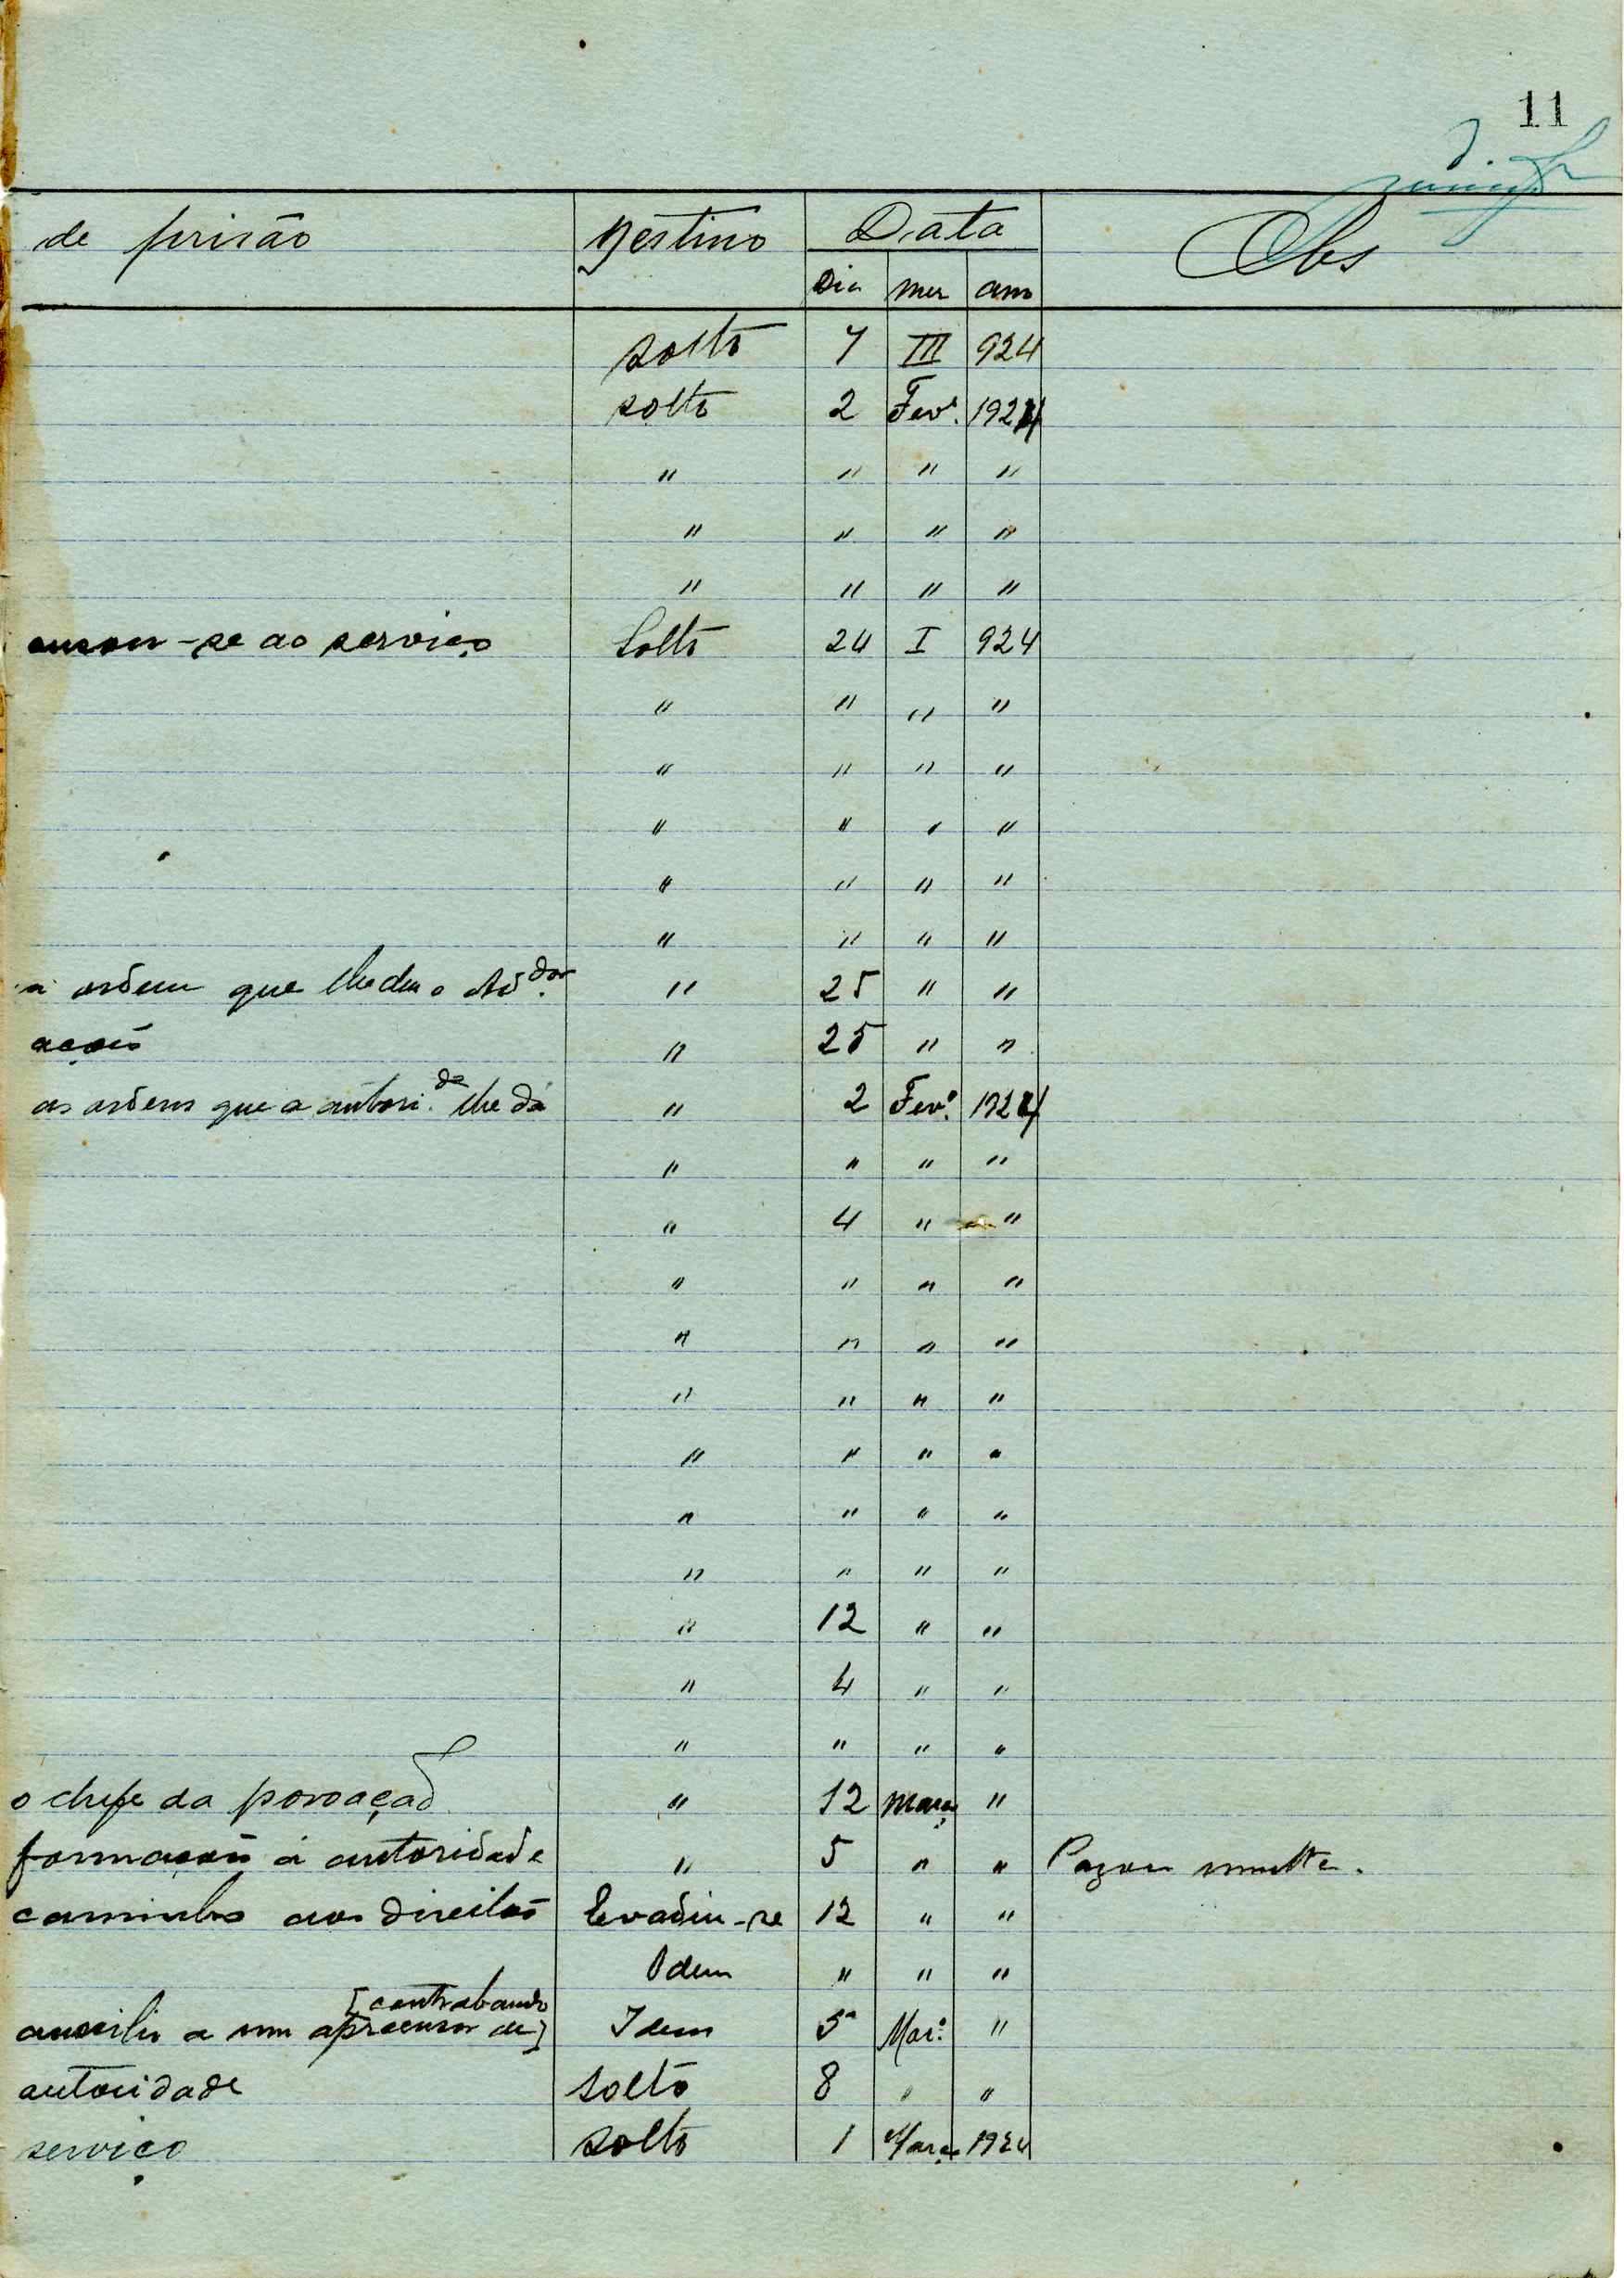 11
de prisão Destino Data Obs
Dia mez ano
solto 7 III 924
solto 2 Fevº. 1924
" " " "
" " " "
" " " "
cusou-se ao serviço Solto 24 I 924
" " " "
" " " "
" " " "
" " " "
" " " "
a ordem que lhe deu o Adºdor " 25 " "
ações " 25 " "
as ordens que a autori.de lhe dá " 2 Fevº. 1924
" " " "
" 4 " "
" " " "
" " " "
" " " "
" " " "
" " " "
" " " "
" 12 " "
" 4 " "
" " " "
o chefe da povoação " 12 Março "
formações á autoridade " 5 " " Pagou multa.
caminho aos direitos Evadiu-se 12 " "
Idem " " "
[contrabando
auxilio a um apreensor de] Idem 5 Marº. "
autoridade solto 8 " "
serviço solto 1 Março 1924